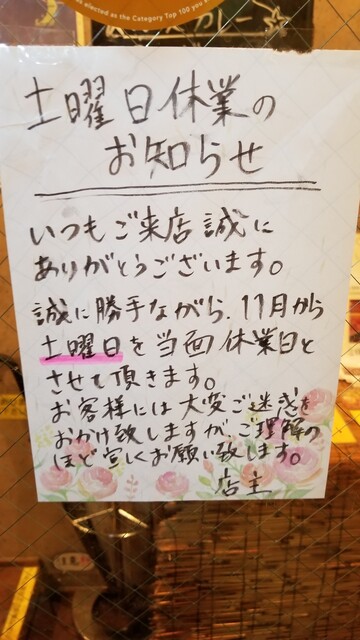 elected as the Category Top 100 you
カレー
土曜日休業の
お知らせ
いつもご来店誠に
ありがとうございます。
誠に勝手ながら、11月から
土曜日を当面休業日と
させて頂きます。
お客様には大変ご迷惑を
おかけ致しますが、ご理解の
ほど宜しくお願い致します。
店主